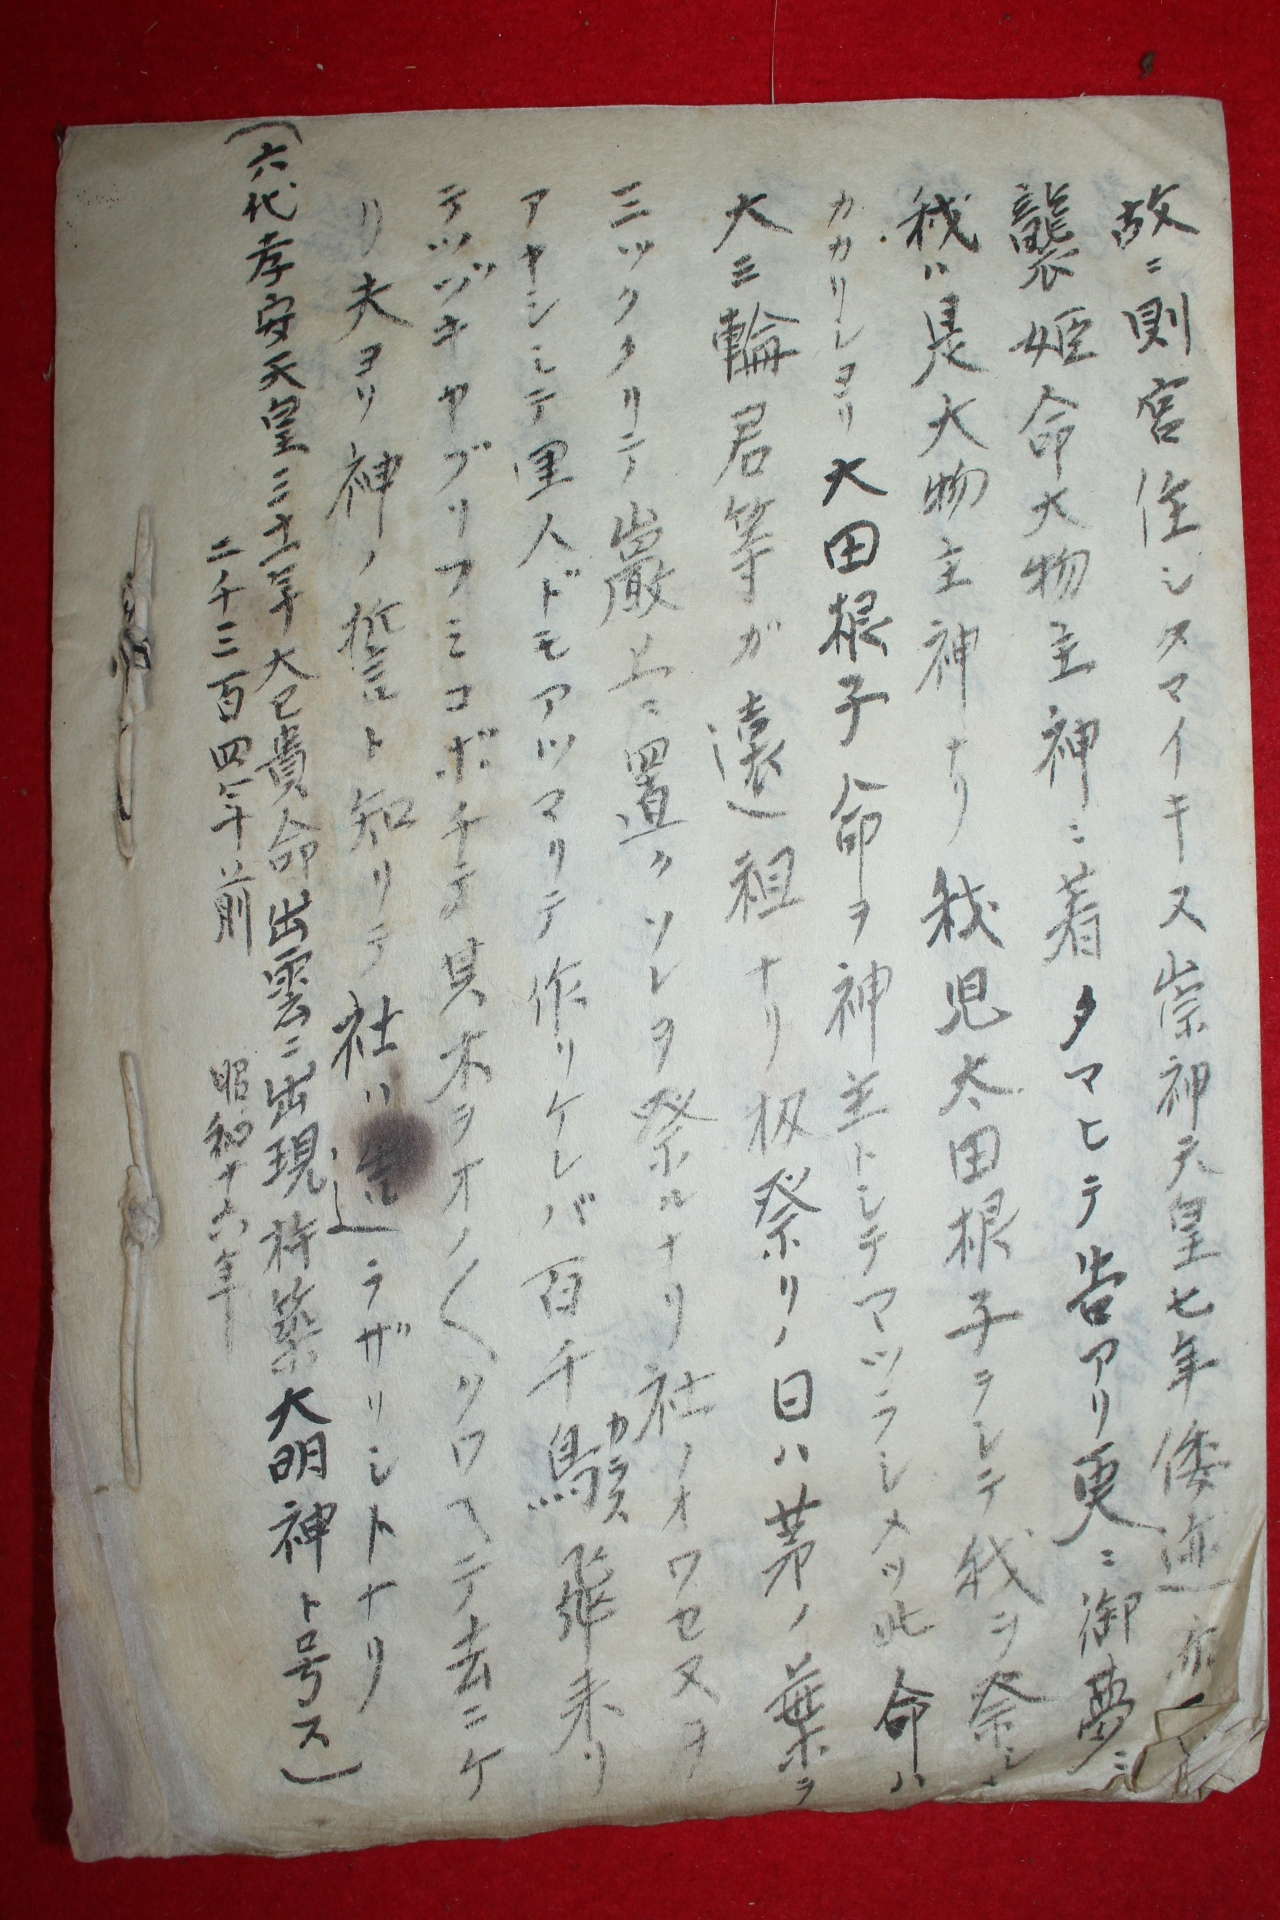 故ニ則宮住シタマイキ又崇神天皇七年倭迹
襲姫命大物主神ニ著タマヒテ告アリ更ニ御夢ニ
我ハ是大物主神ナリ我児太田根子ラシテ我ヲ祭シ
カカリシヨリ大田根子命ヲ神主トシテマツラシメツ此命ハ
大三輪君等ガ遠祖ナリ扨祭リノ日ハ茅ノ葉ヲ
三ツクリテ巌上ニ置クソレヲ祭ルナリ社ノオワセヌヲ
アヤシミテ里人ドモアツマリテ作リケレバ百千烏カラス飛来リ
テツヅキヤブリフミコボチテ其木ヲオノ〱クワヘテ去ニケ
リ夫ヨリ神ノ誓ト知リテ社ハ造ラザリシトナリ
(六代孝安天皇三十一年大己貴命出雲ニ出現杵築大明神ト号ス)
二千三百四年前 昭和十六年